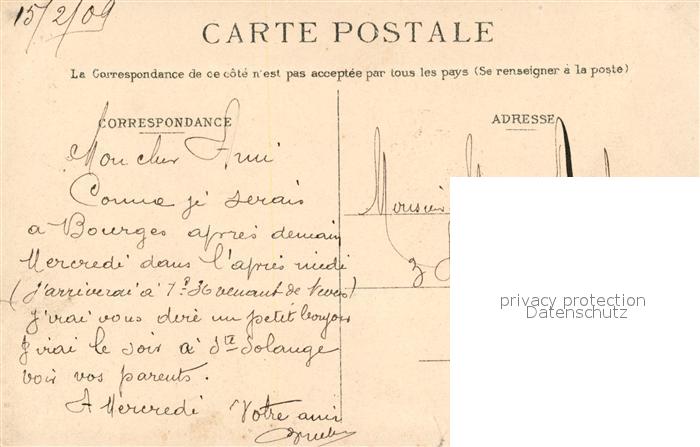 15/2/09
CARTE POSTALE
La Correspondance de ce côté n'est pas acceptée par tous les pays (Se renseigner à la poste)
CORRESPONDANCE
ADRESSE
Mon cher Ami
Comme je serais
a Bourges apres demain
Mercredi dans l'après midi
(j'arriverai à 1h 36 venant de Nevers)
j'irai vous dire un petit bonjour
J'irai le soir à Ste Solange
voir vos parents.
A Mercredi Votre ami
Monsieur
3
privacy protection
Datenschutz